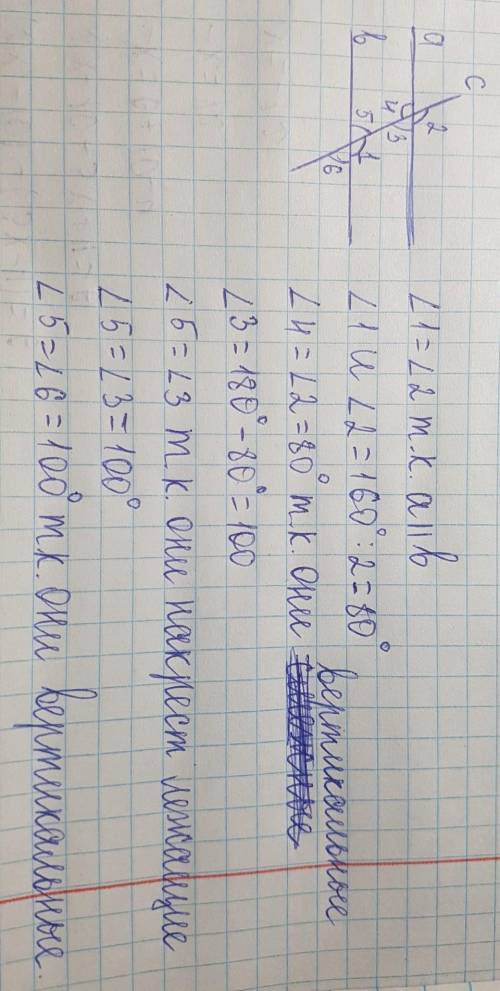 c
a
b
2
4 3
5 1
6
∠1=∠2 т.к. a||b
∠1 и ∠2=160°:2=80°
∠4=∠2=80° т.к. они вертикальные
∠3=180°-80°=100
∠5=∠3 т.к. они накрест лежащие
∠5=∠3=100°
∠5=∠6=100° т.к. они вертикальные.